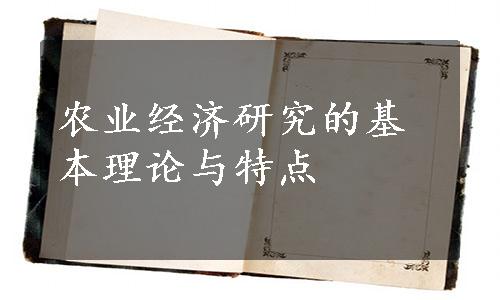 农业经济研究的基
本理论与特点